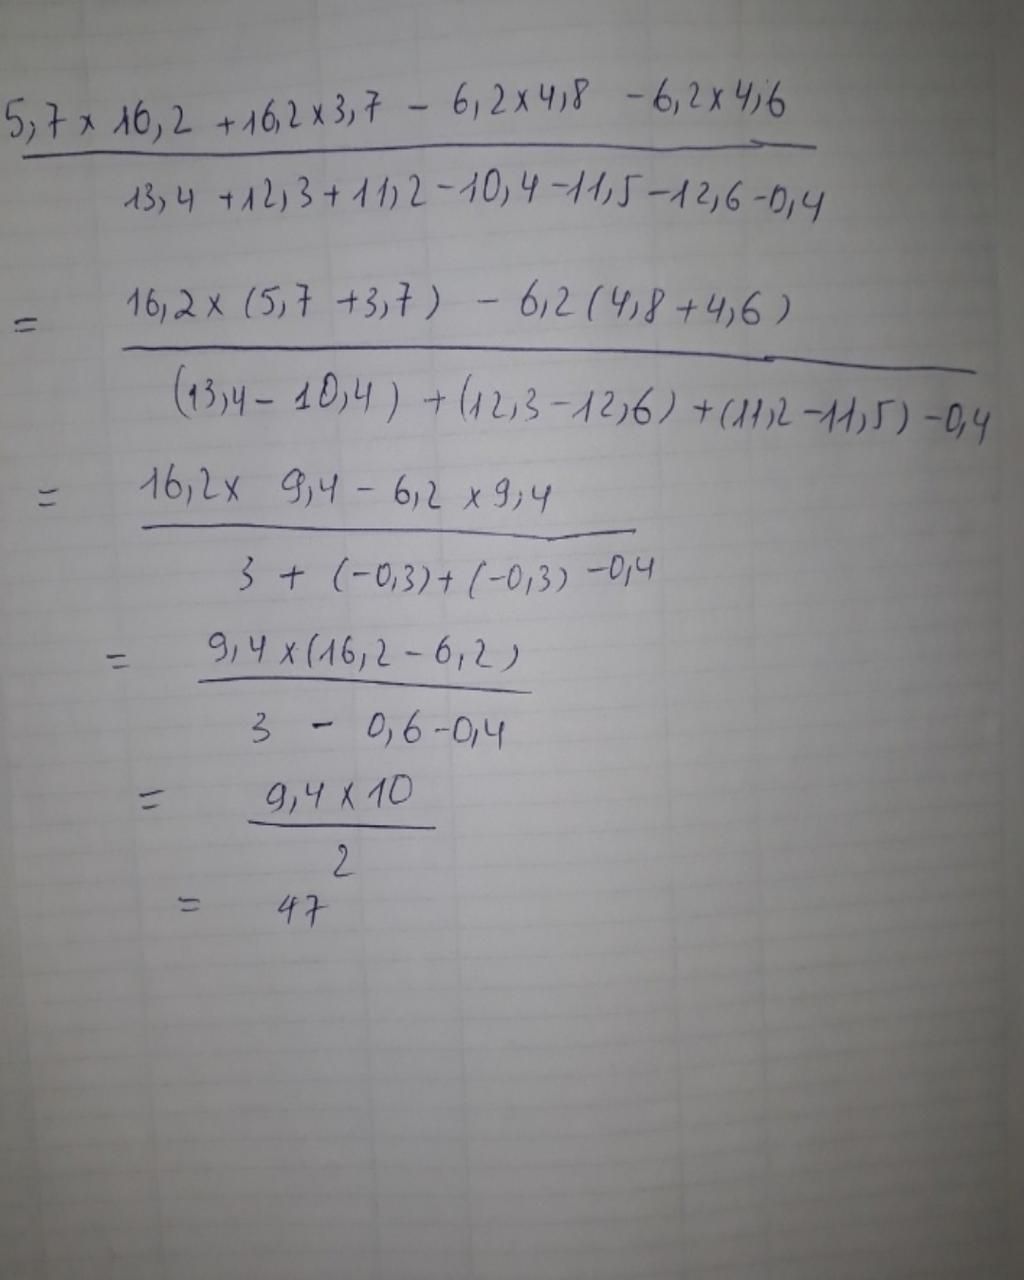 5,7 x 16,2 + 16,2 x 3,7 - 6,2 x 4,8 - 6,2 x 4,6
13,4 + 12,3 + 11,2 - 10,4 - 11,5 - 12,6 - 0,4
16,2 x (5,7 + 3,7) - 6,2 (4,8 + 4,6)
=
(13,4 - 10,4) + (12,3 - 12,6) + (11,2 - 11,5) - 0,4
= 16,2 x 9,4 - 6,2 x 9,4
3 + (-0,3) + (-0,3) - 0,4
= 9,4 x (16,2 - 6,2)
3 - 0,6 - 0,4
= 9,4 x 10
2
= 47